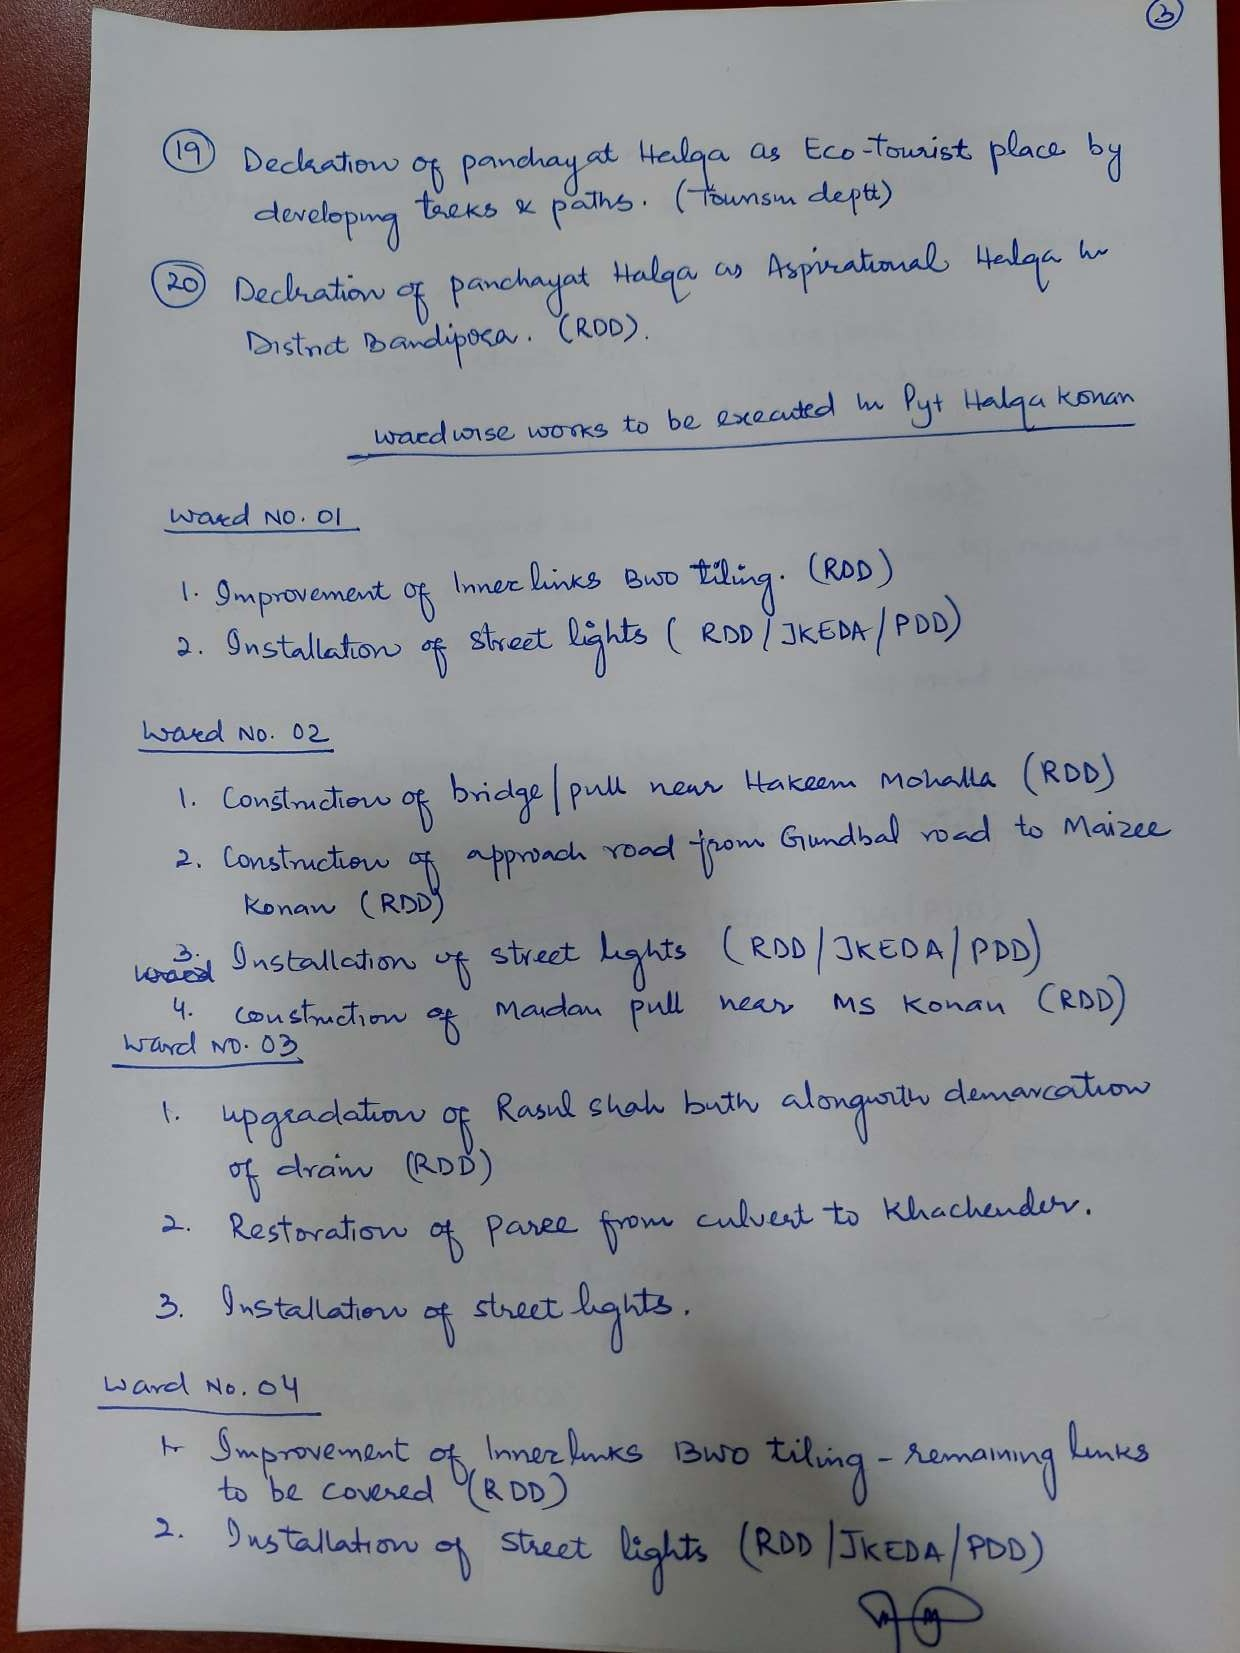 3
19 Deckration of panchayat Halqa as Eco-Tourist place by
developing treks & paths. (Tourism deptt)
20 Deckration of panchayat Halqa as Aspirational Halqa in
District Bandipora. (RDD).
wardwise works to be executed in Pyt Halqa Konan
Ward NO. 01
1. Improvement of Inner links BWO tiling. (RDD)
2. Installation of street lights (RDD/JKEDA/PDD)
Ward No. 02
1. Construction of bridge/pull near Hakeem Mohalla (RDD)
2. Construction of approach road from Gundbal road to Maizee
Konan (RDD)
3. Installation of street lights (RDD/JKEDA/PDD)
Ward
4. construction of Maidan pull near MS Konan (RDD)
Ward NO. 03
1. upgradation of Rasul Shah buth alongwith demarcation
of drain (RDD)
2. Restoration of Paree from culvert to Khachender.
3. Installation of street lights.
Ward No. 04
1. Improvement of Inner links BWO tiling - remaining links
to be covered (RDD)
2. Installation of street lights (RDD/JKEDA/PDD)